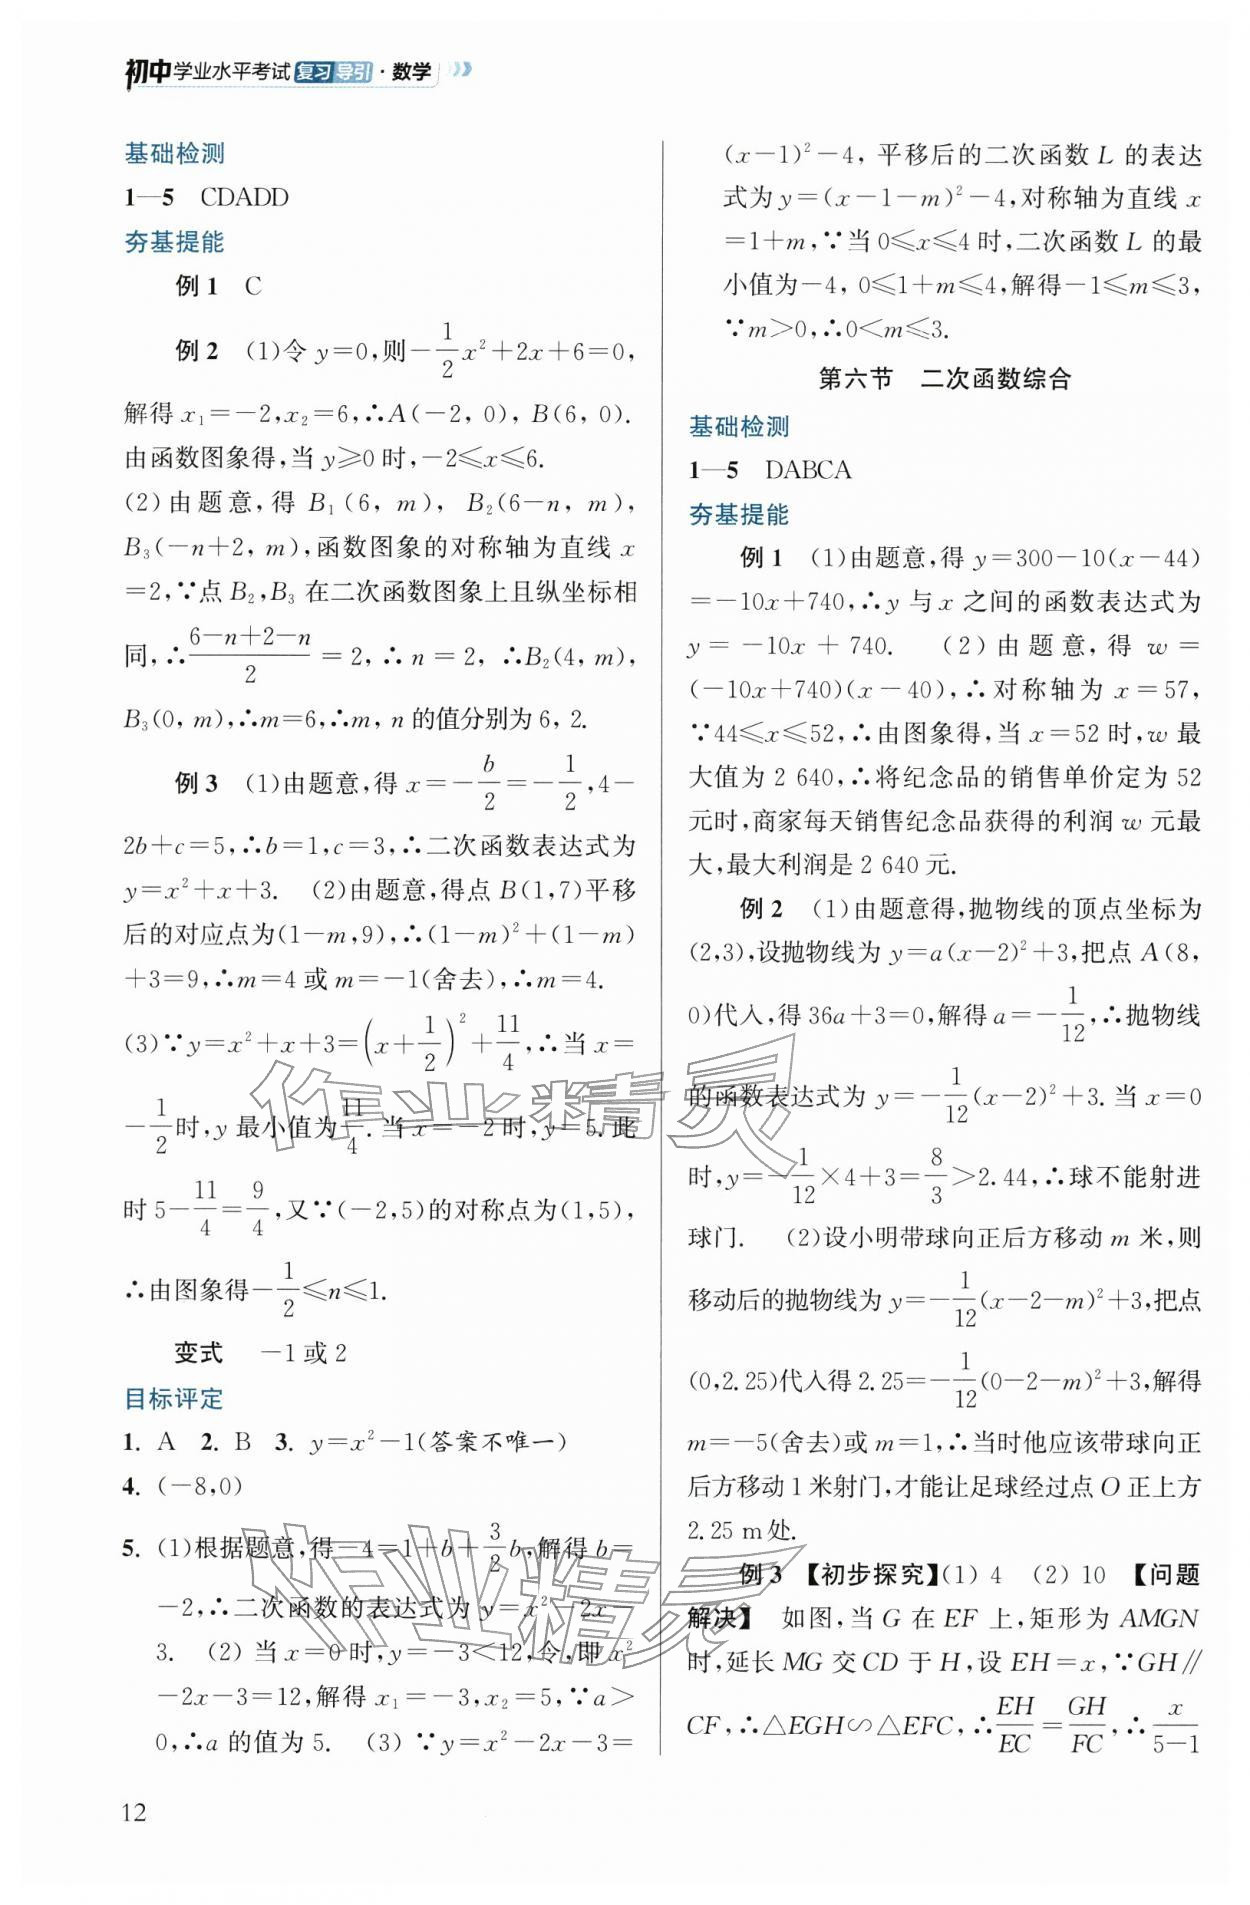 初中学业水平考试复习导引·数学
基础检测
1—5 CDADD
夯基提能
例1 C
例2 (1)令 y=0,则-\frac{1}{2}x²+2x+6=0,
解得 x₁=-2,x₂=6,∴A(-2, 0), B(6, 0).
由函数图象得,当 y≥0 时,-2≤x≤6.
(2)由题意,得 B₁(6, m), B₂(6-n, m),
B₃(-n+2, m),函数图象的对称轴为直线 x
=2,∵点 B₂,B₃ 在二次函数图象上且纵坐标相
同,∴\frac{6-n+2-n}{2}=2,∴n=2, ∴B₂(4, m),
B₃(0, m),∴m=6,∴m, n 的值分别为 6, 2.
例3 (1)由题意,得 x=-\frac{b}{2}=-\frac{1}{2},4-
2b+c=5,∴b=1,c=3,∴二次函数表达式为
y=x²+x+3. (2)由题意,得点 B(1,7)平移
后的对应点为(1-m,9),∴(1-m)²+(1-m)
+3=9,∴m=4 或 m=-1(舍去),∴m=4.
(3)∵y=x²+x+3=(x+\frac{1}{2})²+\frac{11}{4},∴当 x=
-\frac{1}{2}时,y 最小值为\frac{11}{4}.当 x=-2 时,y=5.此
时 5-\frac{11}{4}=\frac{9}{4},又∵(-2,5)的对称点为(1,5),
∴由图象得-\frac{1}{2}≤n≤1.
变式 -1 或 2
目标评定
1. A 2. B 3. y=x²-1(答案不唯一)
4. (-8,0)
5. (1)根据题意,得-4=1+b+\frac{3}{2}b,解得 b=
-2,∴二次函数的表达式为 y=x²-2x-
3. (2)当 x=0 时,y=-3<12,令,即 x²
-2x-3=12,解得 x₁=-3,x₂=5,∵a>
0,∴a 的值为 5. (3)∵y=x²-2x-3=
12
(x-1)²-4, 平移后的二次函数 L 的表达
式为 y=(x-1-m)²-4,对称轴为直线 x
=1+m,∵当 0≤x≤4 时,二次函数 L 的最
小值为-4, 0≤1+m≤4,解得-1≤m≤3,
∵m>0,∴0<m≤3.
第六节 二次函数综合
基础检测
1—5 DABCA
夯基提能
例1 (1)由题意,得 y=300-10(x-44)
=-10x+740,∴y 与 x 之间的函数表达式为
y=-10x+740. (2)由题意,得 w=
(-10x+740)(x-40),∴对称轴为 x=57,
∵44≤x≤52,∴由图象得,当 x=52 时,w 最
大值为 2 640,∴将纪念品的销售单价定为 52
元时,商家每天销售纪念品获得的利润 w 元最
大,最大利润是 2 640 元.
例2 (1)由题意得,抛物线的顶点坐标为
(2,3),设抛物线为 y=a(x-2)²+3,把点 A(8,
0)代入,得 36a+3=0,解得 a=-\frac{1}{12},∴抛物线
的函数表达式为 y=-\frac{1}{12}(x-2)²+3.当 x=0
时,y=-\frac{1}{12}×4+3=\frac{8}{3}>2.44,∴球不能射进
球门. (2)设小明带球向正后方移动 m 米,则
移动后的抛物线为 y=-\frac{1}{12}(x-2-m)²+3,把点
(0,2.25)代入得 2.25=-\frac{1}{12}(0-2-m)²+3,解得
m=-5(舍去)或 m=1,∴当时他应该带球向正
后方移动 1 米射门,才能让足球经过点 O 正上方
2.25 m处.
例3 【初步探究】(1) 4 (2) 10 【问题
解决】 如图,当 G 在 EF 上,矩形为 AMGN
时,延长 MG 交 CD 于 H,设 EH=x,∵GH∥
CF,∴△EGH∽△EFC,∴\frac{EH}{EC}=\frac{GH}{FC},∴\frac{x}{5-1}
作业精灵
作业精灵